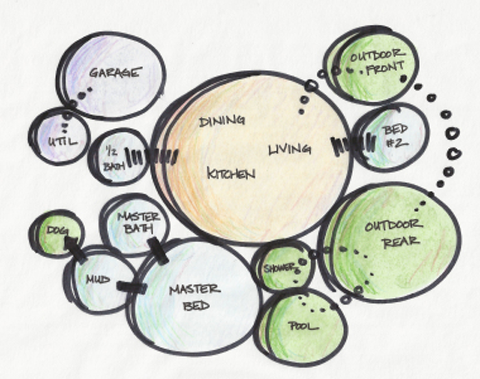 GARAGE
OUTDOOR
FRONT
DINING
UTIL
1/2
BATH
LIVING
BED
#2
KITCHEN
MASTER
BATH
DOG
OUTDOOR
REAR
MUD
SHOWER
MASTER
BED
POOL